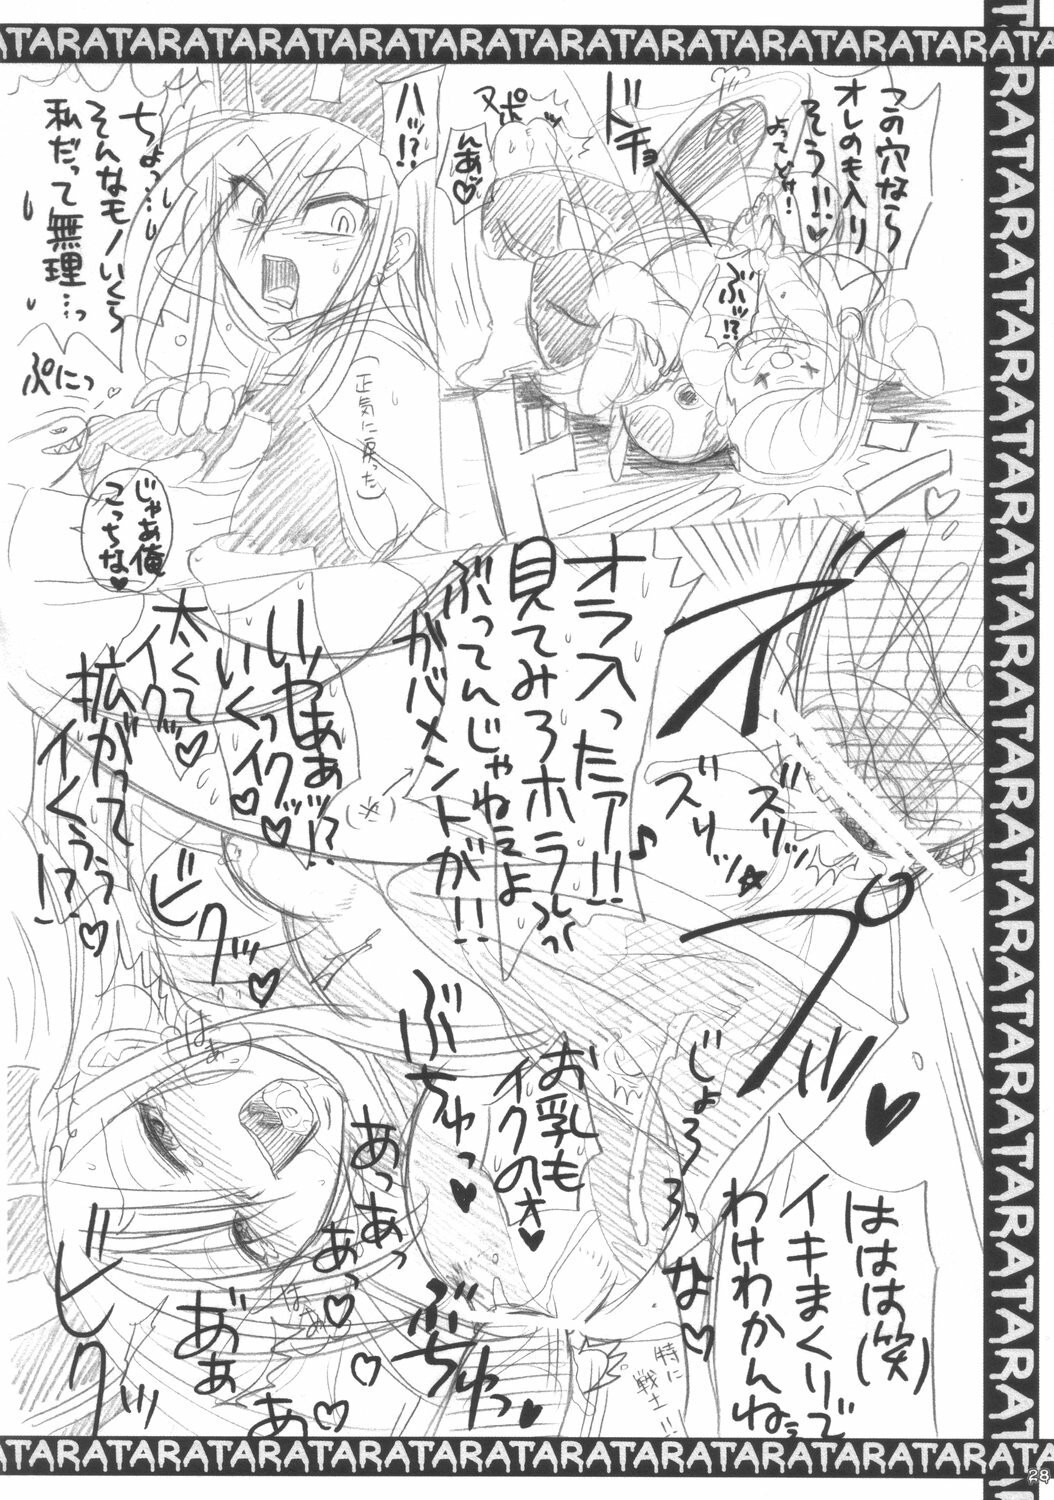 ATARATARATARATARATARATARATARATARATARATARATARATA
この穴なら
オレのも入り
そう!!♥
よってどけ!
ドチョ
ぶッ!?
ヌポッ
んあッ♥
ハッ!?
(正気に戻った)
ちょっ…し
そんなモノいくら
私だって無理…っ
ぷにっ
じゃあ俺
こっちな♥
ズリッ
ズリッ
オラ入ったァ!!♪
見てみろホラ
ぶってんじゃねェよ
ガバメントが!!
いやあぁッ!?
いくっイクッ♥
太くて
イク♥
拡がって
イくぅぅ!?♥
ビクッ♥
ぶちゅっ♥
お乳も
イクのォ♥
じょろろろっ
はぁ
あっあっ
あっ♥
あ゛ぁ
あ♥
ビレクッ
ぶちゅっ♥
ははは(笑)
イキまくりで
わけわかんねェ
な♥
特に
戦士!!
28